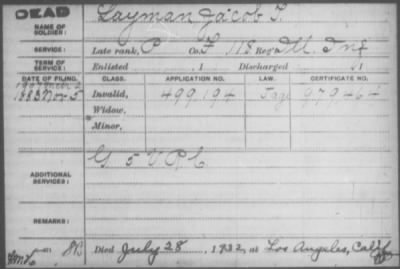 DEAD
NAME OF SOLDIER: Layman, Jacob T.
SERVICE: Late rank, P Co. F, 118 Reg't Ill. Inf
TERM OF SERVICE: Enlisted , 1 Discharged , 1
DATE OF FILING. CLASS. APPLICATION NO. LAW. CERTIFICATE NO.
1907
1883 Nov 5 Invalid, 499.194 979464
Widow,
Minor,
ADDITIONAL SERVICES: G 5 V.R.C
REMARKS:
Died July 28, 1932, at Los Angeles, Calif